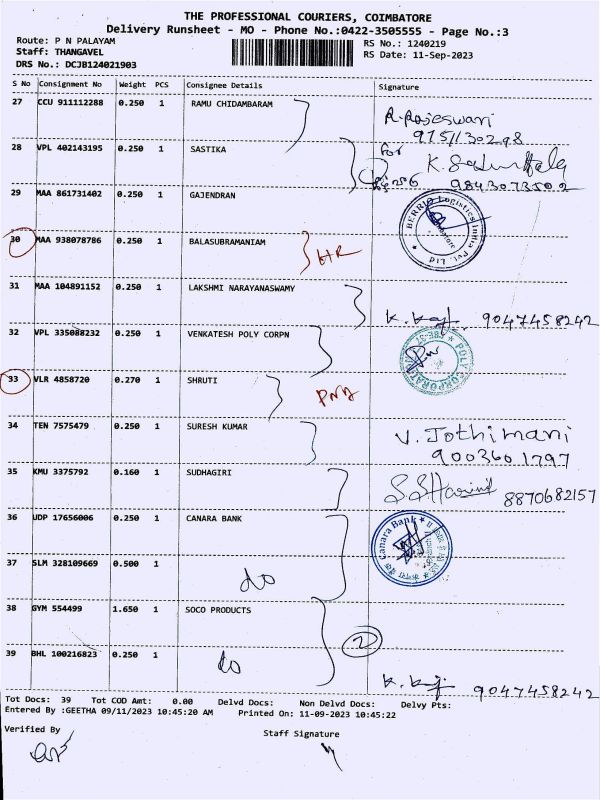 THE PROFESSIONAL COURIERS, COIMBATORE
Delivery Runsheet - MO - Phone No.:0422-3505555 - Page No.:3
Route: P N PALAYAM
Staff: THANGAVEL
DRS No.: DCJB124021903
RS No.: 1240219
RS Date: 11-Sep-2023
S No Consignment No Weight PCS Consignee Details Signature
27 CCU 911112288 0.250 1 RAMU CHIDAMBARAM
R. Rajeswari
9751130298
28 VPL 402143195 0.250 1 SASTIKA
for
9843073502
29 MAA 861731402 0.250 1 GAJENDRAN
BERRIO Logistics India Pvt. Ltd
30 MAA 938078786 0.250 1 BALASUBRAMANIAM
31 MAA 104891152 0.250 1 LAKSHMI NARAYANASWAMY
9047458242
32 VPL 335088232 0.250 1 VENKATESH POLY CORPN
33 VLR 4858720 0.270 1 SHRUTI
34 TEN 7575479 0.250 1 SURESH KUMAR
V. Jothimani
9003601797
35 KMU 3375792 0.160 1 SUDHAGIRI
8870682157
36 UDP 17656006 0.250 1 CANARA BANK
Canara Bank
37 SLM 328109669 0.500 1 do
38 GYM 554499 1.650 1 SOCO PRODUCTS
2
39 BHL 100216823 0.250 1 do
9047458242
Tot Docs: 39 Tot COD Amt: 0.00 Delvd Docs: Non Delvd Docs: Delvy Pts:
Entered By :GEETHA 09/11/2023 10:45:20 AM Printed On: 11-09-2023 10:45:22
Verified By
Staff Signature